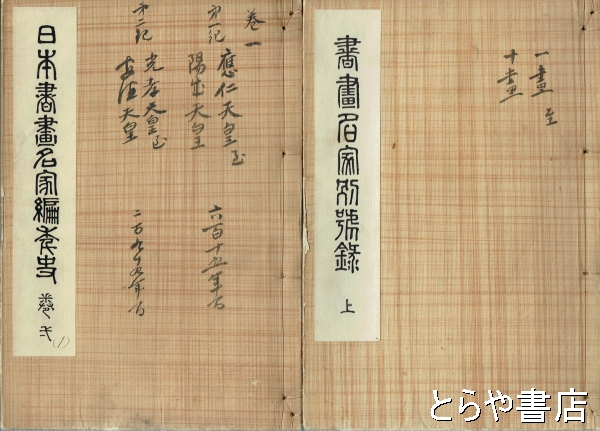 書畫名家別號錄
上
一畫至
十畫
日本書畫名家編年史
卷弌
(1)
卷一
第一紀 應仁天皇至
陽成天皇
六百十五年間
第二紀 光孝天皇至
安徳天皇
二百九十九年間
とらや書店